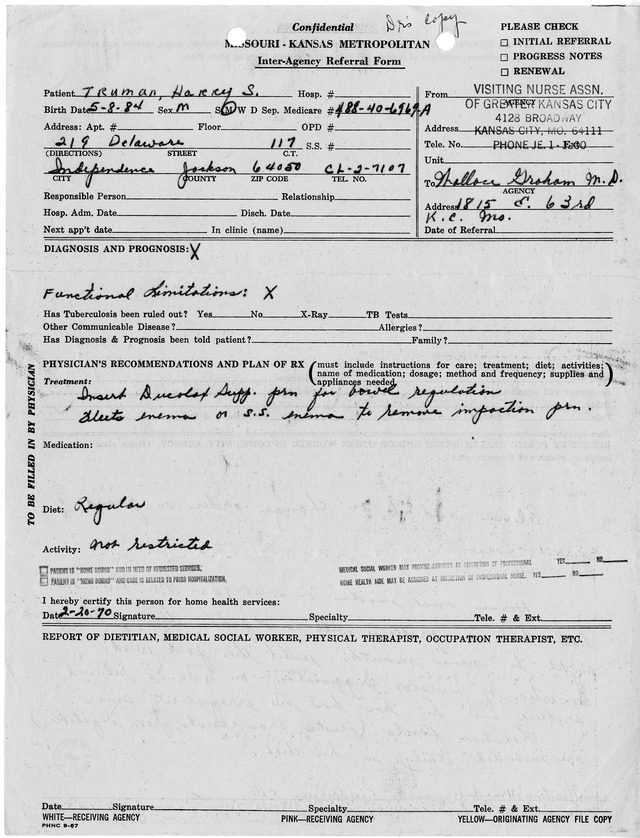 Confidential
Dr's Copy
MISSOURI - KANSAS METROPOLITAN
Inter-Agency Referral Form
PLEASE CHECK
INITIAL REFERRAL
PROGRESS NOTES
RENEWAL
Patient Truman, Harry S. Hosp. #
Birth Date 5-8-84 Sex M S M W D Sep. Medicare # 488-40-6969-A
Address: Apt. # Floor OPD #
219 Delaware 117 S.S. #
(DIRECTIONS) STREET C.T.
Independence Jackson 64050 CL-2-7107
CITY COUNTY ZIP CODE TEL. NO.
Responsible Person Relationship
Hosp. Adm. Date Disch. Date
Next app't date In clinic (name)
From VISITING NURSE ASSN.
AGENCY OF GREATER KANSAS CITY
4128 BROADWAY
Address KANSAS CITY, MO. 64111
Tele. No. PHONE JE. 1- Ext.
Unit
To Wallace Graham M.D.
AGENCY
Address 1815 E. 63rd
K.C. Mo.
Date of Referral
DIAGNOSIS AND PROGNOSIS: X
Functional Limitations: X
Has Tuberculosis been ruled out? Yes No X-Ray TB Tests
Other Communicable Disease? Allergies?
Has Diagnosis & Prognosis been told patient? Family?
TO BE FILLED IN BY PHYSICIAN
PHYSICIAN'S RECOMMENDATIONS AND PLAN OF RX (must include instructions for care; treatment; diet; activities; name of medication; dosage; method and frequency; supplies and appliances needed)
Treatment:
Insert Ducolax Supp. prn for bowel regulation
Fleets enema or S.S. enema to remove impaction prn.
Medication:
Diet: Regular
Activity: not restricted
PATIENT IS "HOME BOUND" AND IN NEED OF REQUESTED SERVICES.
PATIENT IS "HOME BOUND" AND CARE IS RELATED TO PRIOR HOSPITALIZATION.
MEDICAL SOCIAL WORKER MAY PROVIDE SERVICES AT DISCRETION OF PROFESSIONAL YES NO
HOME HEALTH AIDE MAY BE ASSIGNED AT DISCRETION OF PROFESSIONAL NURSE. YES NO
I hereby certify this person for home health services:
Date 2-20-70 Signature Specialty Tele. # & Ext.
REPORT OF DIETITIAN, MEDICAL SOCIAL WORKER, PHYSICAL THERAPIST, OCCUPATION THERAPIST, ETC.
Date Signature Specialty Tele. # & Ext.
WHITE—RECEIVING AGENCY PINK—RECEIVING AGENCY YELLOW—ORIGINATING AGENCY FILE COPY
PHNC 9-67